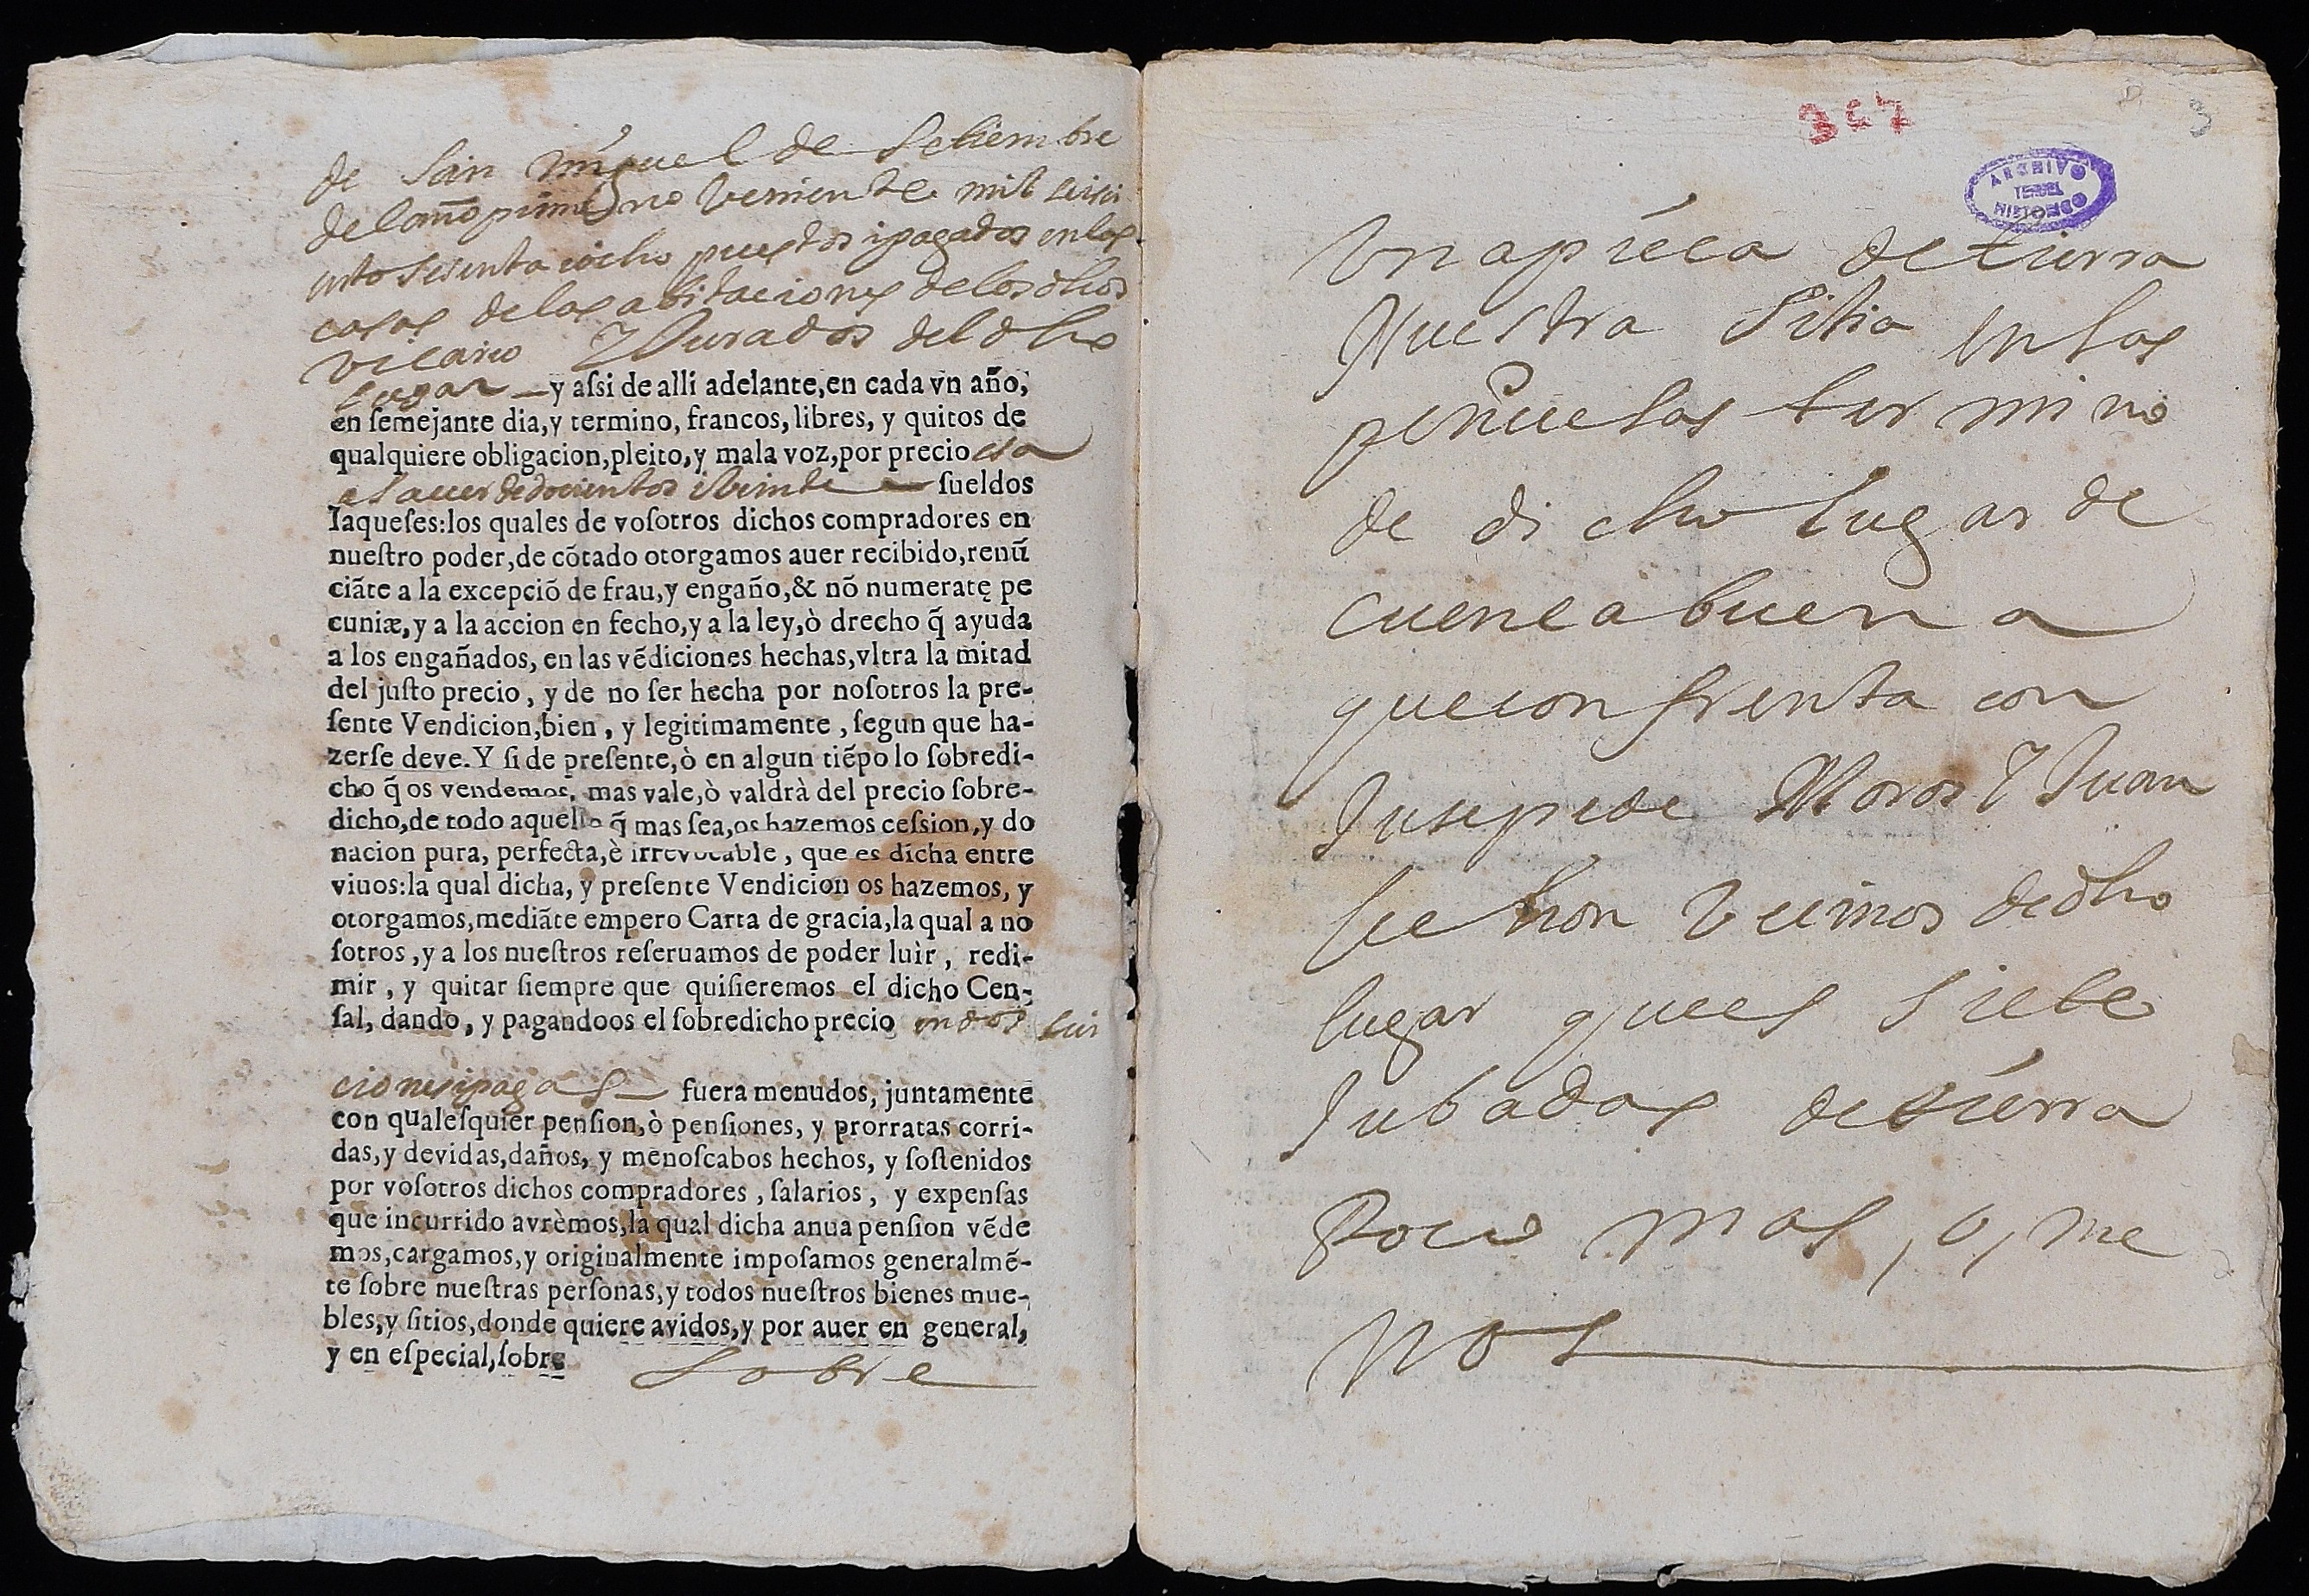 de San Miguel de Setiembre
del año primero veniente mil seisci
entos sesenta i ocho puestos i pagados en las
casas de las abitaciones de los dhos
vicario y Jurados del dho
lugar — y aſsi de alli adelante, en cada vn año,
en ſemejante dia, y termino, francos, libres, y quitos de
qualquiere obligacion, pleito, y mala voz, por precio es a
es auer de docientos i veinte — ſueldos
Iaqueſes: los quales de voſotros dichos compradores en
nueſtro poder, de cõtado otorgamos auer recibido, renũ
ciãte a la excepciõ de frau, y engaño, & nõ numeratę pe
cuniæ, y a la accion en fecho, y a la ley, ò drecho q̃ ayuda
a los engañados, en las vẽdiciones hechas, vltra la mitad
del juſto precio, y de no ſer hecha por noſotros la pre-
ſente Vendicion, bien, y legitimamente, ſegun que ha-
zerſe deve. Y ſi de preſente, ò en algun tiẽpo lo ſobredi-
cho q̃ os vendemos, mas vale, ò valdrà del precio ſobre-
dicho, de todo aquello q̃ mas ſea, os hazemos ceſsion, y do
nacion pura, perfecta, è irrevocable, que es dicha entre
viuos: la qual dicha, y preſente Vendicion os hazemos, y
otorgamos, mediãte empero Carta de gracia, la qual a no
ſotros, y a los nueſtros reſeruamos de poder luìr, redi-
mir, y quitar ſiempre que quiſieremos el dicho Cen-
ſal, dando, y pagandoos el ſobredicho precio en dos lui
ciones i pagas — fuera menudos, juntamente
con qualeſquier penſion, ò penſiones, y prorratas corri-
das, y devidas, daños, y menoſcabos hechos, y ſoſtenidos
por voſotros dichos compradores, ſalarios, y expenſas
que incurrido avrèmos, la qual dicha anua penſion vẽde
mos, cargamos, y originalmente impoſamos generalmẽ-
te ſobre nueſtras perſonas, y todos nueſtros bienes mue-
bles, y ſitios, donde quiere avidos, y por auer en general,
y en eſpecial, ſobre sobre
367
3
ARCHIVO
TERUEL
Vna pieça de tierra
Nuestra Sitia en las
peñuelas termino
de dicho lugar de
cuencabuena
que confrenta con
Jusepe de Moros y Juan
veçinos de dho
lugar que es siete
Jubadas de tierra
Poco mas, o, me
nos